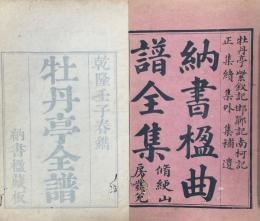 牡丹亭 紫釵記 邯鄲記 南柯記
正集 續集 外集 補遺
納書楹曲
譜全集
脩綆山
房發兌
乾隆壬子春鐫
牡丹亭全譜
納書楹藏板